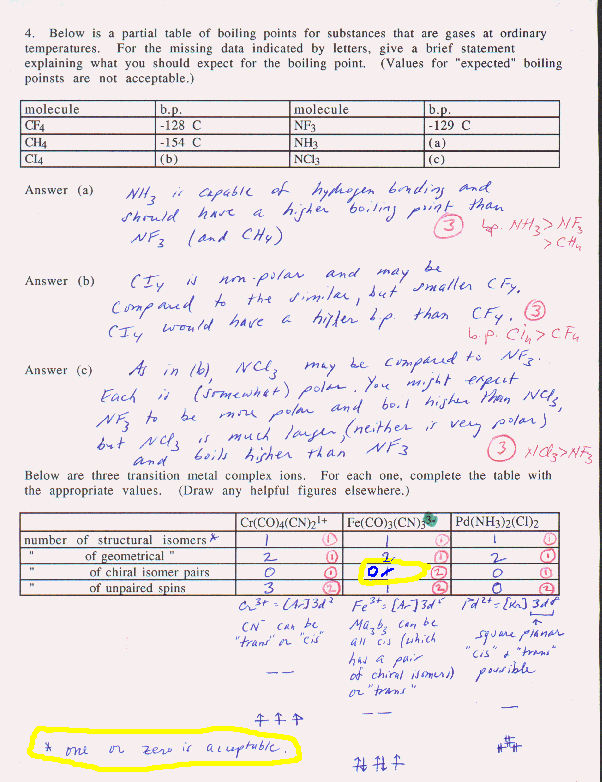 4. Below is a partial table of boiling points for substances that are gases at ordinary
temperatures. For the missing data indicated by letters, give a brief statement
explaining what you should expect for the boiling point. (Values for "expected" boiling
poinsts are not acceptable.)
molecule b.p. molecule b.p.
CF4 -128 C NF3 -129 C
CH4 -154 C NH3 (a)
CI4 (b) NCl3 (c)
Answer (a) NH3 is capable of hydrogen bonding and
should have a higher boiling point than
NF3 (and CH4)
3 b.p. NH3 > NF3
> CH4
Answer (b) CI4 is non-polar and may be
compared to the similar, but smaller CF4.
CI4 would have a higher b.p. than CF4. 3
b.p. CI4 > CF4
Answer (c) As in (b), NCl3 may be compared to NF3.
Each is (somewhat) polar. You might expect
NF3 to be more polar and boil higher than NCl3,
but NCl3 is much larger, (neither is very polar)
and boils higher than NF3
3 NCl3 > NF3
Below are three transition metal complex ions. For each one, complete the table with
the appropriate values. (Draw any helpful figures elsewhere.)
Cr(CO)4(CN)2 1+ Fe(CO)3(CN)3 Pd(NH3)2(Cl)2
number of structural isomers * 1 1 1 1 1 1
" of geometrical " 2 1 2 1 2 1
" of chiral isomer pairs 0 1 0 2 0 1
" of unpaired spins 3 2 1 2 0 2
Cr3+ = [Ar]3d3 Fe3+ = [Ar]3d5 Pd2+ = [Kr]
CN- can be
"trans" or "cis"
Ma3b3 can be
all cis (which
has a pair
of chiral isomers)
or "trans"
square planar
"cis" + "trans"
possible
* one or zero is acceptable.